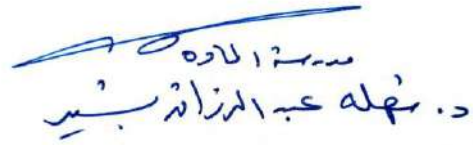 مدرسة المادة
د. نهله عبد الرزاق بشير